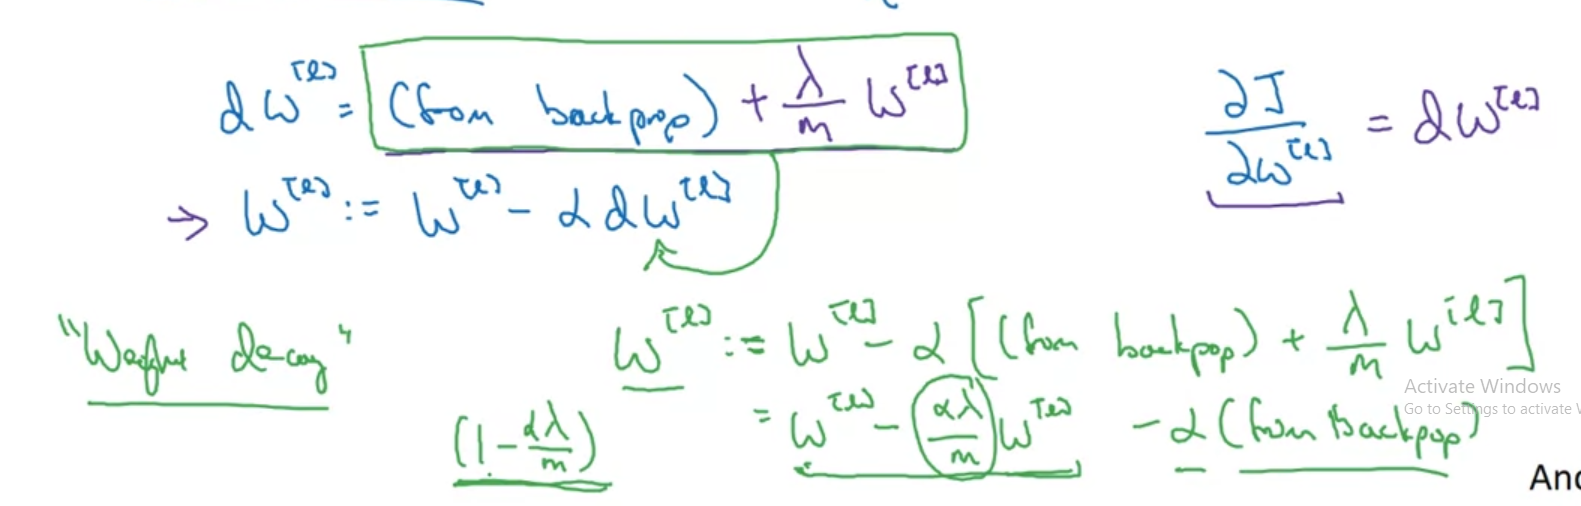 dW^[l] = (from backprop) + λ/m W^[l]
∂J/∂W^[l] = dW^[l]
→ W^[l] := W^[l] - α dW^[l]
"Weight decay"
W^[l] := W^[l] - α [(from backpop) + λ/m W^[l]]
= W^[l] - αλ/m W^[l] - α (from backpop)
(1 - αλ/m)
Activate Windows
Go to Settings to activate